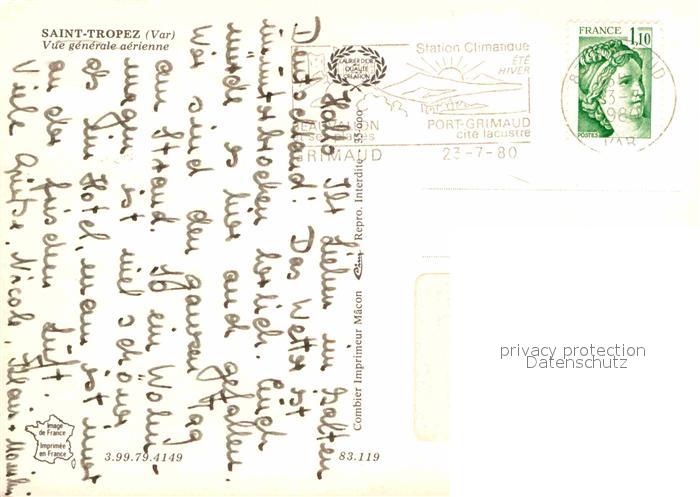 SAINT-TROPEZ (Var)
Vue générale aérienne
Station Climatique
ÉTÉ
HIVER
LAURIER D'OR
QUALITÉ
CRÉATION
PORT-GRIMAUD
cité lacustre
GRIMAUD 23-7-80
FRANCE
1,10
POSTES
VAR
Hallo Ihr Lieben im kalten
Deutschland! Das Wetter ist
herrlich. Euch
würde es hier auch gefallen.
Wir sind den ganzen Tag
am Strand. So ein Wohn-
wagen ist viel schöner
als im Hotel, man ist
an der frischen Luft.
Viele Grüße, Nicole,
Combier Imprimeur Mâcon Cim Repro. Interdite - 35-000
privacy protection
Datenschutz
Image
de France
Imprimée
en France
3.99.79.4149
83.119